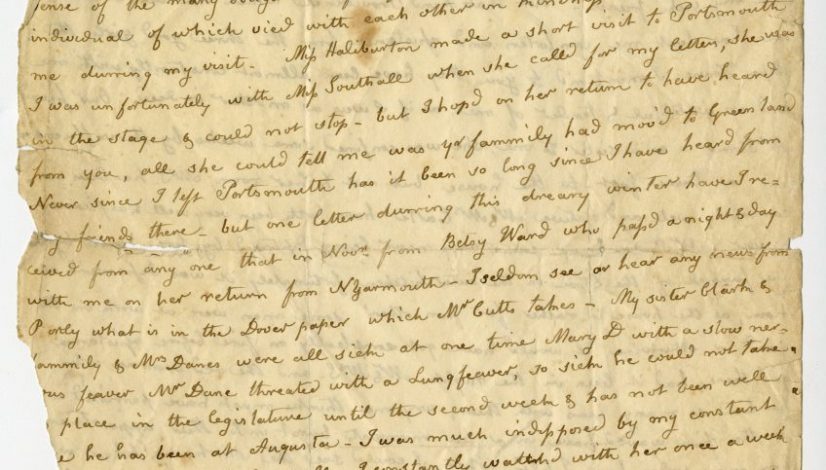 sense of the many
individual of which vied with each other in kindness
me durring my visit - Miss Haliburton made a short visit to Portsmouth
I was unfortunately with Miss Southall when she called for my letters, she was
in the stage & could not stop - but I hop'd on her return to have heard
from you, all she could tell me was yr fammily had mov'd to Greenland
Never since I left Portsmouth has it been so long since I have heard from
my friends there - but one letter durring this dreary winter have I re=
ceived from any one that in Novr. from Betsy Ward who pass'd a night & day
with me on her return from N Yarmouth - I seldom see or hear any news from
P only what is in the Dover paper which Mr Cutts takes - My sister Clark &
fammily & Mrs Danes were all sick at one time Mary D with a slow ner=
ous feaver Mr Dane threated with a Lung feaver, so sick he could not take
place in the legislature until the second week & has not been well
e he has been at Augusta - I was much indisposed by my constant
I constantly watch'd with her once a week